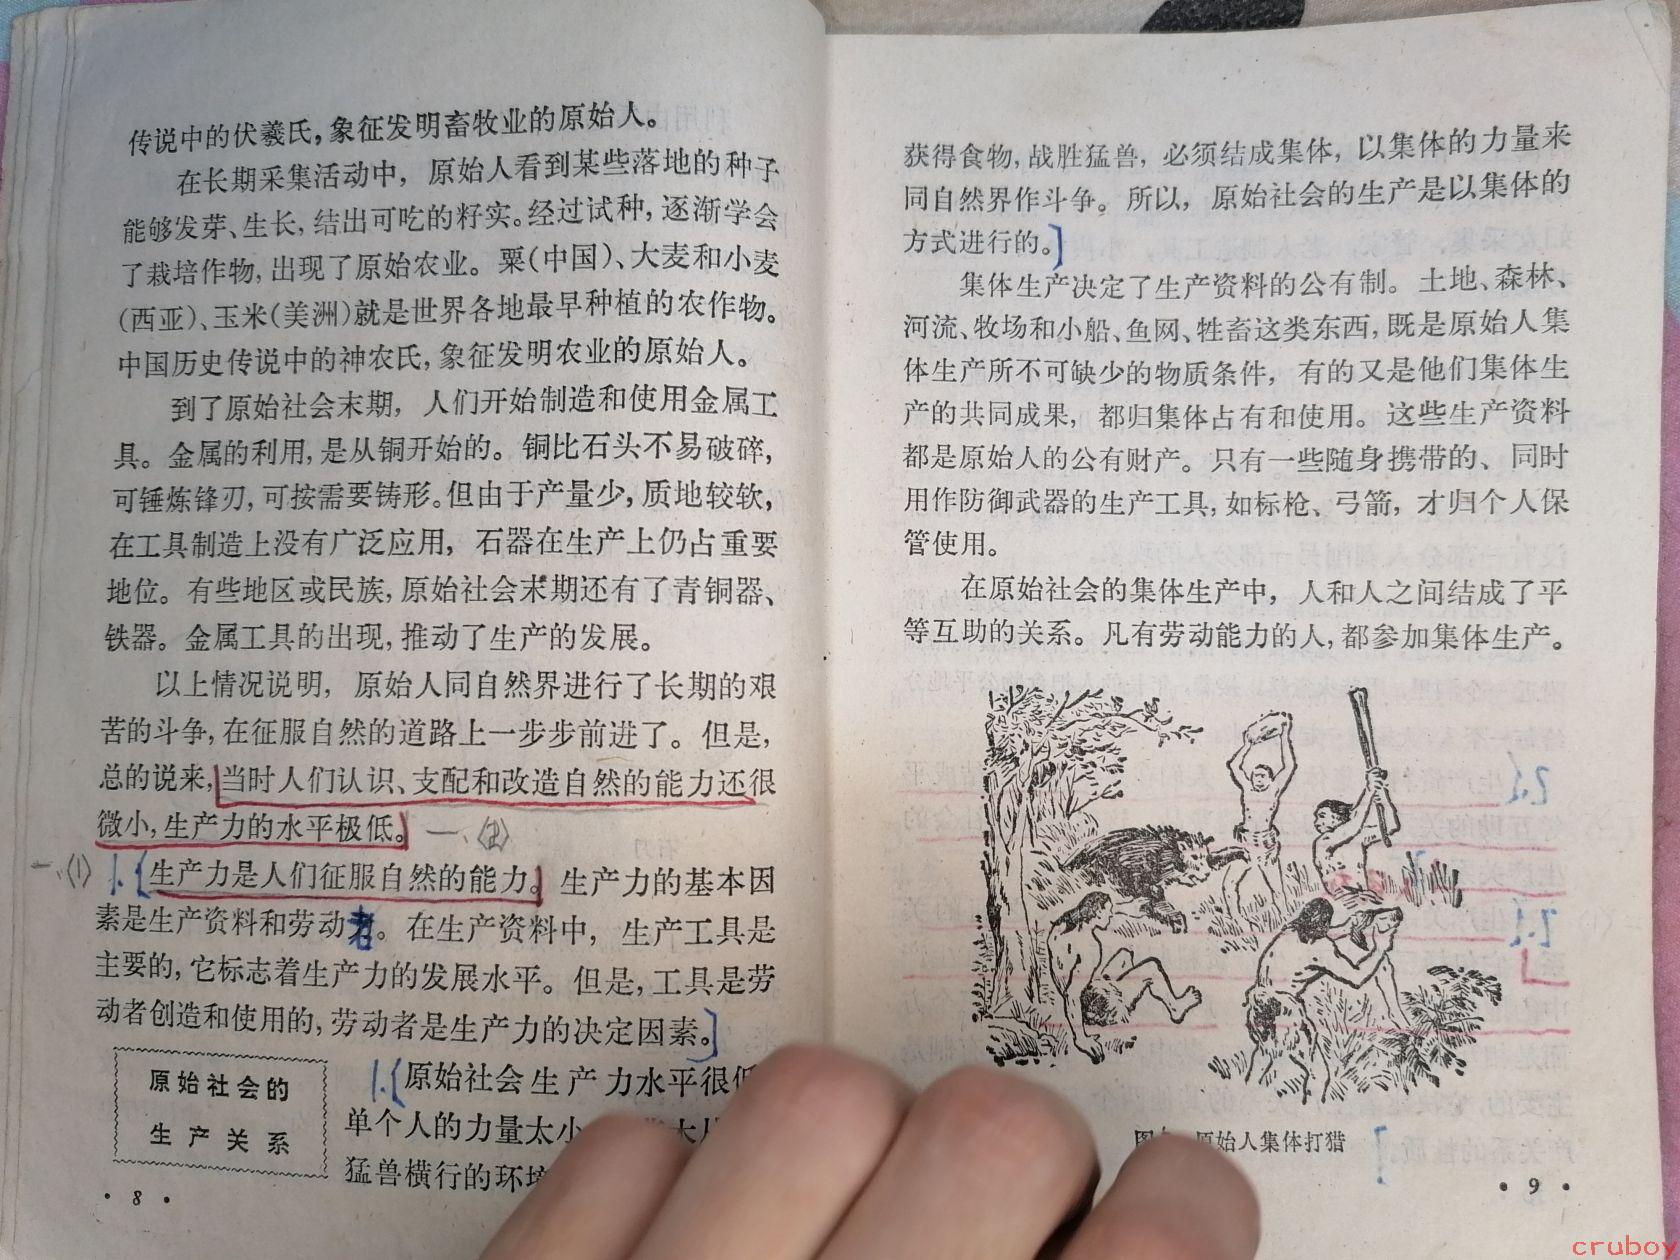 传说中的伏羲氏，象征发明畜牧业的原始人。
在长期采集活动中，原始人看到某些落地的种子
能够发芽、生长，结出可吃的籽实。经过试种，逐渐学会
了栽培作物，出现了原始农业。粟（中国）、大麦和小麦
（西亚）、玉米（美洲）就是世界各地最早种植的农作物。
中国历史传说中的神农氏，象征发明农业的原始人。
到了原始社会末期，人们开始制造和使用金属工
具。金属的利用，是从铜开始的。铜比石头不易破碎，
可锤炼锋刃，可按需要铸形。但由于产量少，质地较软，
在工具制造上没有广泛应用，石器在生产上仍占重要
地位。有些地区或民族，原始社会末期还有了青铜器、
铁器。金属工具的出现，推动了生产的发展。
以上情况说明，原始人同自然界进行了长期的艰
苦的斗争，在征服自然的道路上一步步前进了。但是，
总的说来，当时人们认识、支配和改造自然的能力还很
微小，生产力的水平极低。一、〈2〉
一、〈1〉 1.{生产力是人们征服自然的能力。生产力的基本因
素是生产资料和劳动者。在生产资料中，生产工具是
主要的，它标志着生产力的发展水平。但是，工具是劳
动者创造和使用的，劳动者是生产力的决定因素。]
原始社会的
生产关系
1.{原始社会生产力水平很
单个人的力量太小
猛兽横行的环
·8·
获得食物，战胜猛兽，必须结成集体，以集体的力量来
同自然界作斗争。所以，原始社会的生产是以集体的
方式进行的。]
集体生产决定了生产资料的公有制。土地、森林、
河流、牧场和小船、鱼网、牲畜这类东西，既是原始人集
体生产所不可缺少的物质条件，有的又是他们集体生
产的共同成果，都归集体占有和使用。这些生产资料
都是原始人的公有财产。只有一些随身携带的、同时
用作防御武器的生产工具，如标枪、弓箭，才归个人保
管使用。
在原始社会的集体生产中，人和人之间结成了平
等互助的关系。凡有劳动能力的人，都参加集体生产。
图 原始人集体打猎
·9·
cruboy